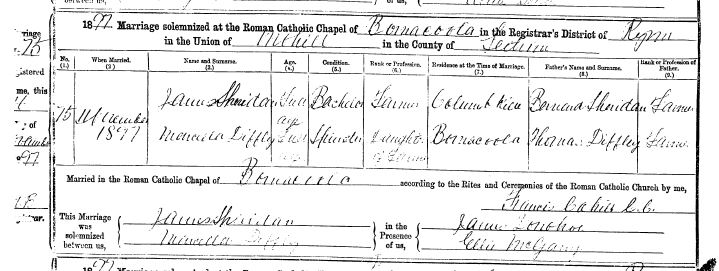 1897 Marriage solemnized at the Roman Catholic Chapel of Bornacoola in the Registrar's District of Rynn
in the Union of Mohill in the County of Leitrim
No. When Married. Name and Surname. Age. Condition. Rank or Profession. Residence at the Time of Marriage. Father's Name and Surname. Rank or Profession of Father.
(1.) (2.) (3.) (4.) (5.) (6.) (7.) (8.) (9.)
James Sheridan Full age Bachelor Farmer Bernard Sheridan Farmer
75 1897 Marcella Diffley Full Spinster Daughter of Farmer Bornacoola Thomas Diffley Farmer
Married in the Roman Catholic Chapel of Bornacoola according to the Rites and Ceremonies of the Roman Catholic Church by me,
Francis Cahill C.C.
This Marriage was solemnized between us,
James Sheridan
Marcella Diffley
in the Presence of us,
James Donohoe
Ellie McGarry